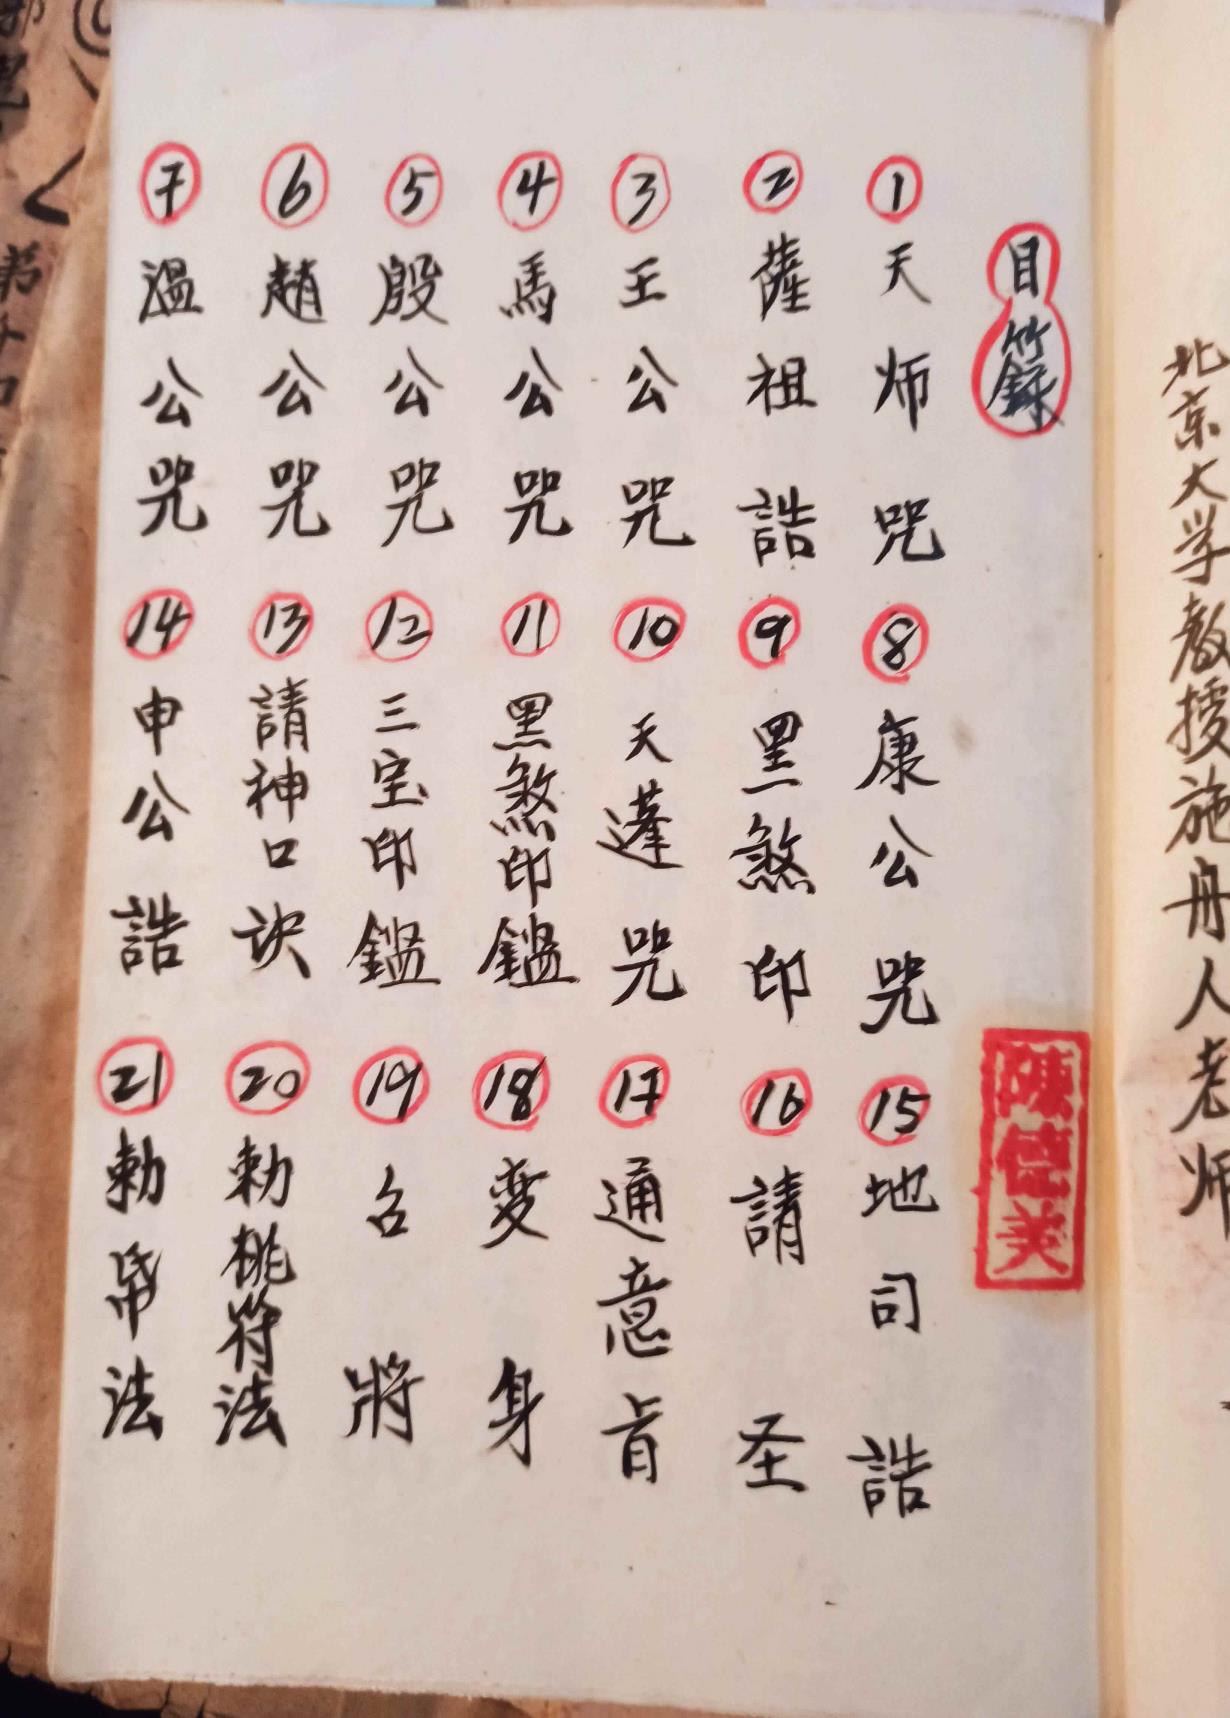 北京大学教授施舟人老师
目籙
1 天师咒
2 薩祖誥
3 王公咒
4 馬公咒
5 殷公咒
6 趙公咒
7 溫公咒
8 康公咒
9 黑煞印
10 天蓬咒
11 黑煞印鑑
12 三宝印鑑
13 請神口訣
14 申公誥
15 地司誥
16 請圣
17 通意旨
18 变身
19 召將
20 勅桃符法
21 勅帋法
陳德美